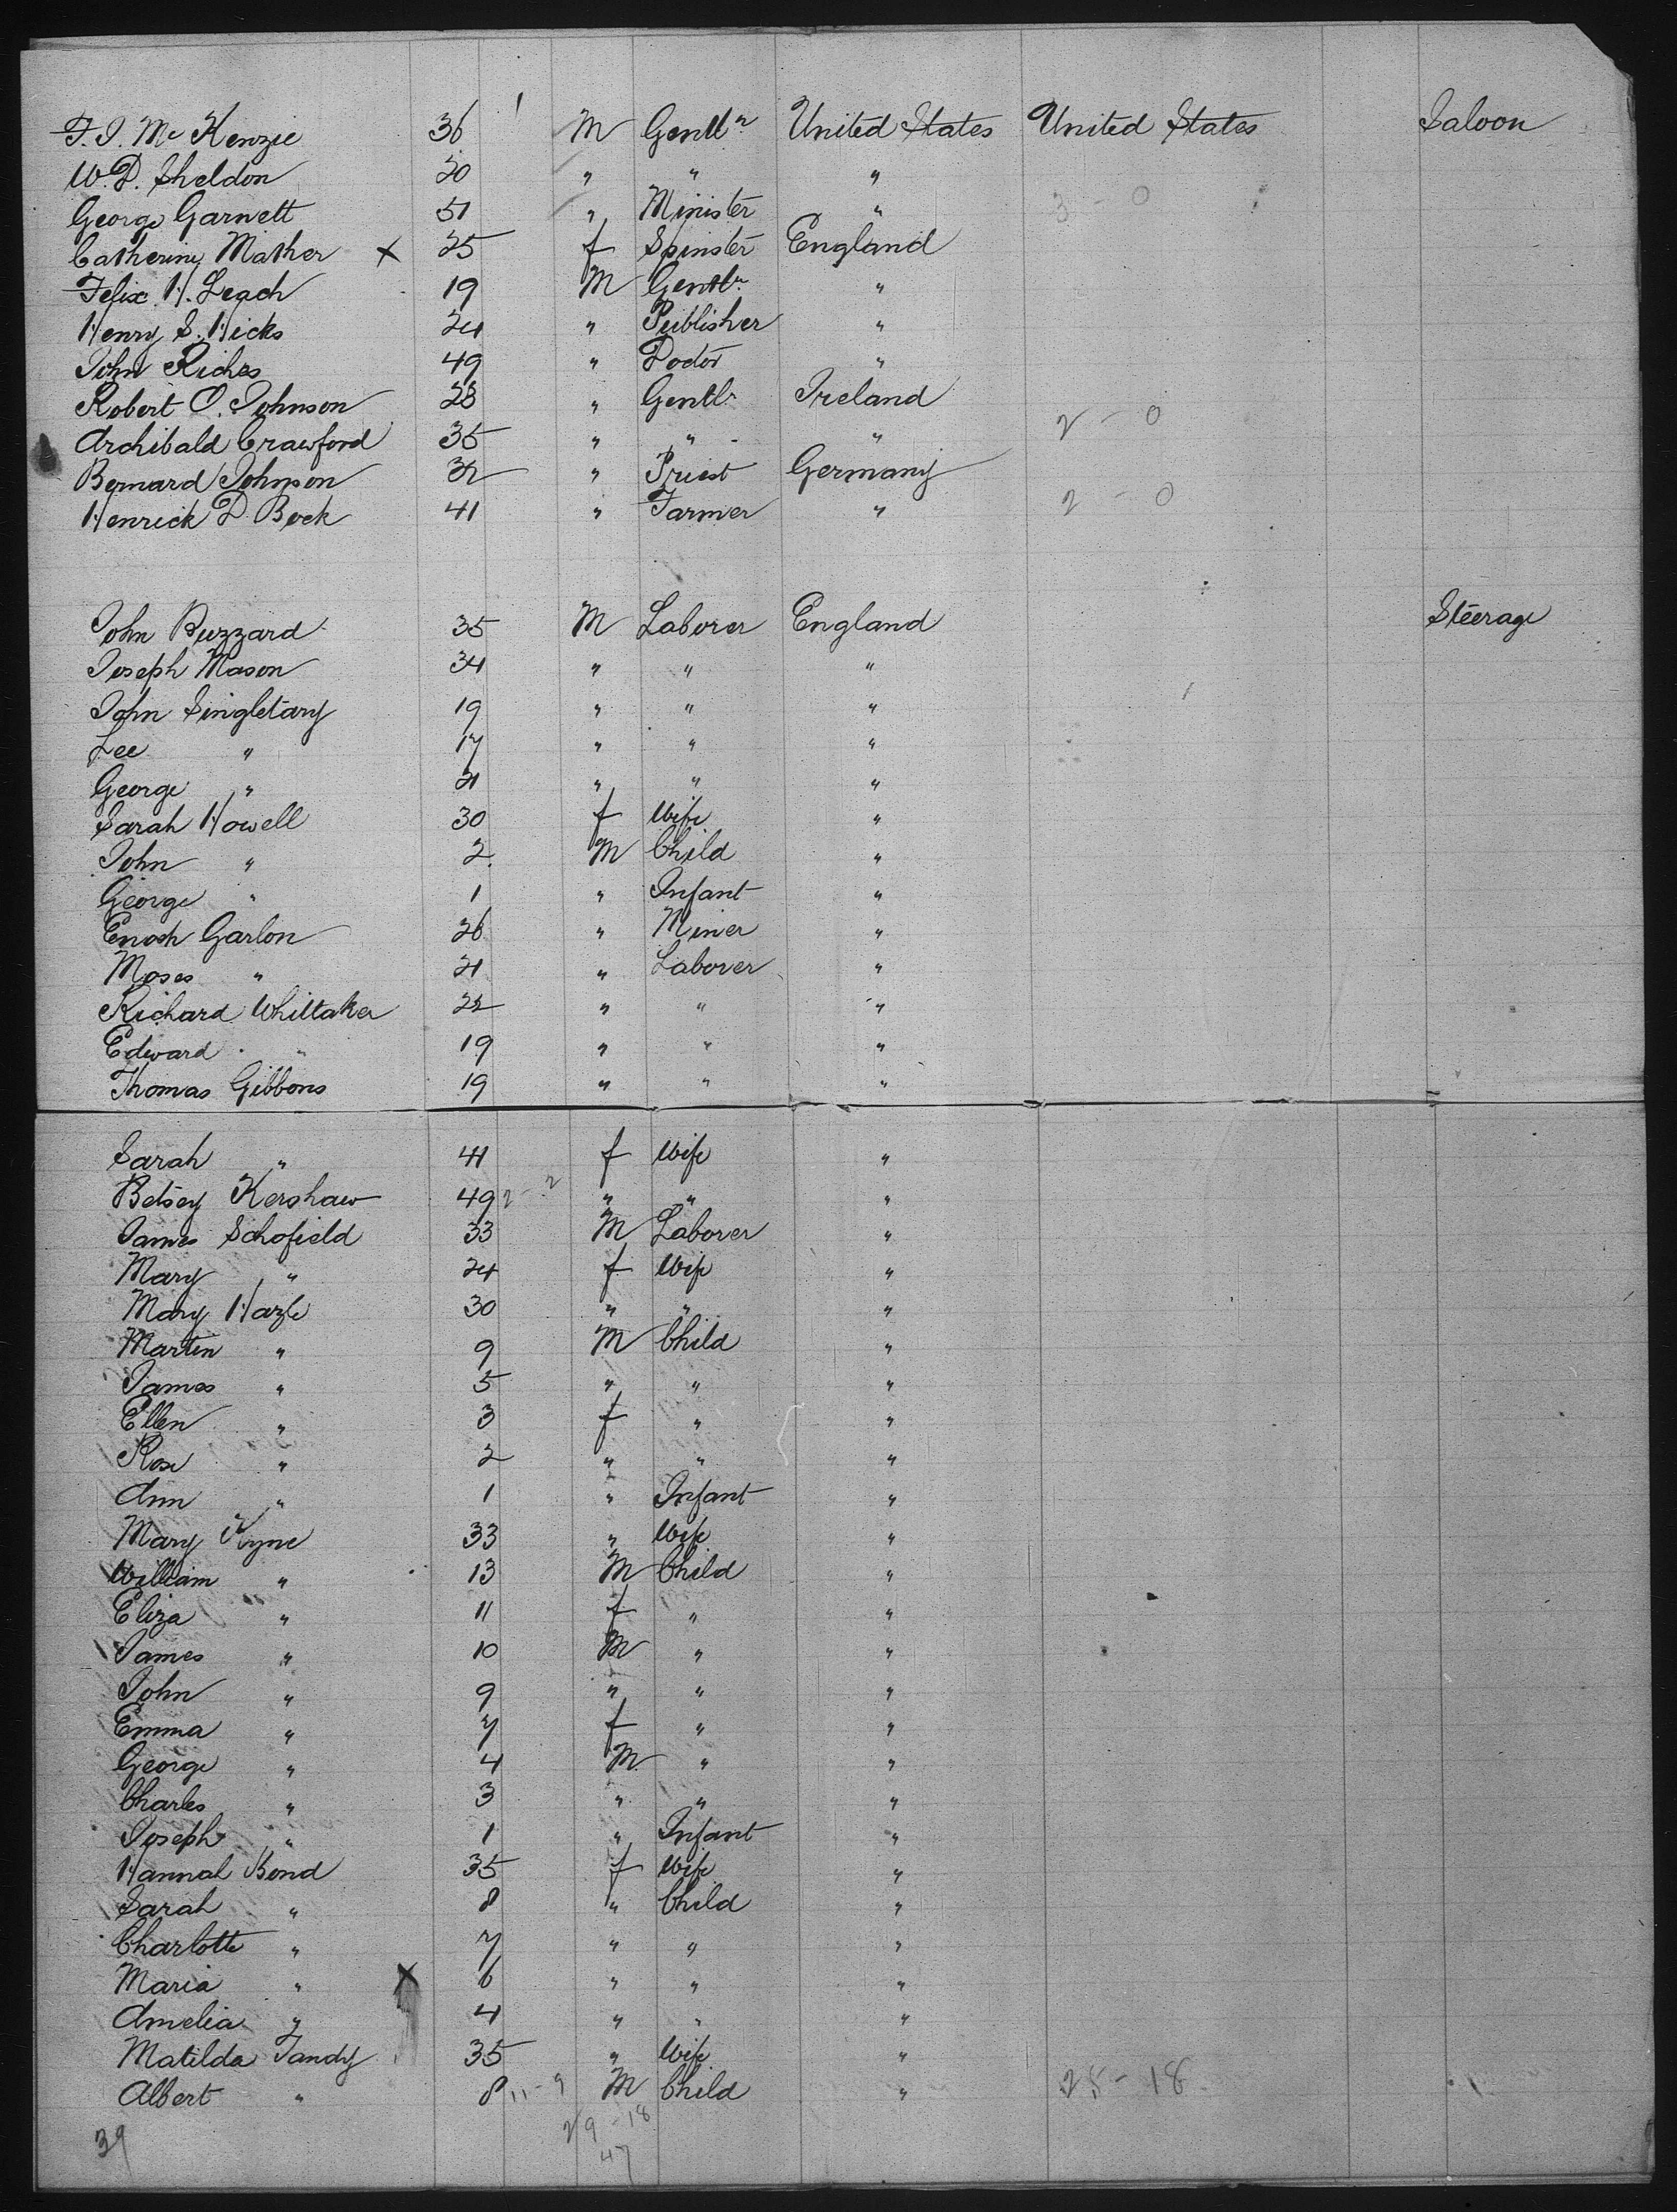 F. J. Mc Kenzie 36 M Gentln United States United States Saloon
W. D. Sheldon 20 " " "
George Garnett 51 " Minister " 3 - 0
Catherine Mather X 25 f Spinster England
Felix H. Leach 19 M Gentln "
Henry S. Hicks 24 " Publisher "
John Riches 49 " Doctor "
Robert O. Johnson 28 " Gentln Ireland
2 - 0
Archibald Crawford 35 " " "
Bernard Johnson 32 " Priest Germany
2 - 0
Henrick D. Bock 41 " Farmer "
John Buzzard 35 M Laborer England Steerage
Joseph Mason 34 " " "
John Singletary 19 " " "
Lee " 17 " " "
George " 21 " " "
Sarah Howell 30 f Wife "
John " 2 M Child "
George " 1 " Infant "
Enoch Garlon 26 " Miner "
Moses " 21 " Laborer "
Richard Whittaker 22 " " "
Edward " 19 " " "
Thomas Gibbons 19 " " "
Sarah " 41 f Wife "
Betsey Kershaw 49 2 - 2 " " "
James Schofield 33 M Laborer "
Mary " 24 f Wife "
Mary Hazle 30 " " "
Martin " 9 M Child "
James " 5 " " "
Ellen " 3 f " "
Rose " 2 " " "
Ann " 1 " Infant "
Mary Kyne 33 " Wife "
William " 13 M Child "
Eliza " 11 f " "
James " 10 M " "
John " 9 " " "
Emma " 7 f " "
George " 4 M " "
Charles " 3 " " "
Joseph " 1 " Infant "
Hannah Bond 35 f Wife "
Sarah " 8 " Child "
Charlotte " 7 " " "
Maria " X 6 " " "
Amelia " 4 " " "
Matilda Tandy 35 " Wife "
Albert " 8 11 - 9 M Child " 25 - 18
29 - 18
39 47